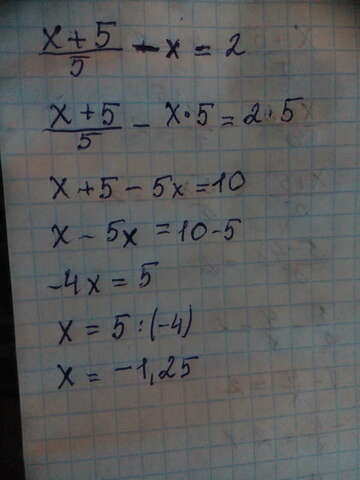 x+5/5 - x = 2
x+5/5 - x·5 = 2·5
x+5-5x=10
x-5x=10-5
-4x=5
x=5:(-4)
x=-1,25